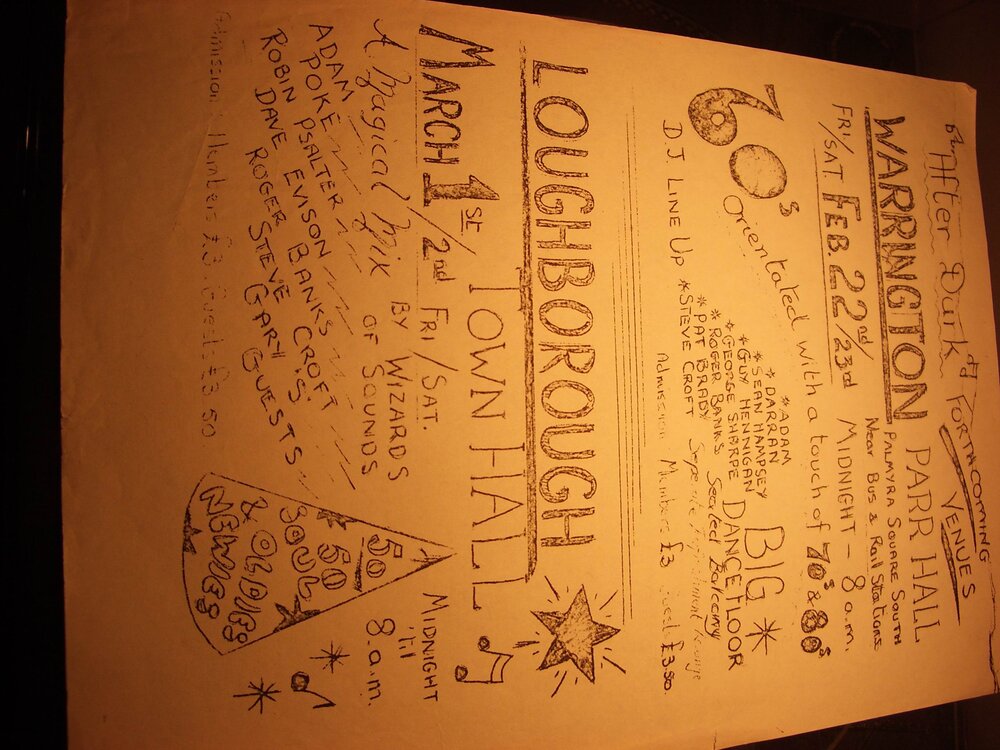 By After Dark
FORTHCOMING
VENUES
WARRINGTON PARR HALL
PALMYRA SQUARE SOUTH
Near Bus & Rail Stations
FRI/SAT FEB. 22nd/23rd MIDNIGHT - 8 a.m.
60s Orientated with a touch of 70s & 80s
D.J. LINE UP
*ADAM
*DARRAN
*SEAN HAMPSEY
*GUY HENNIGAN
*GEORGE SHARPE
*ROGER BANKS
*PAT BRADY
*STEVE CROFT
BIG *
DANCEFLOOR
Seated Balcony
Seperate Refreshment Lounge
Admission Members £3 Guests £3.50.
LOUGHBOROUGH
TOWN HALL
MARCH 1ST/2nd FRI/SAT.
MIDNIGHT
'til
8.a.m.
A Magical Mix BY WIZARDS
OF SOUNDS
ADAM
POKE PSALTER
ROBIN EVISON BANKS CROFT
DAVE ROGER STEVE GARY GUESTS
A
50/
50
SOUL
& OLDIES
NEWIES
Admission : Members £3 Guests £3.50